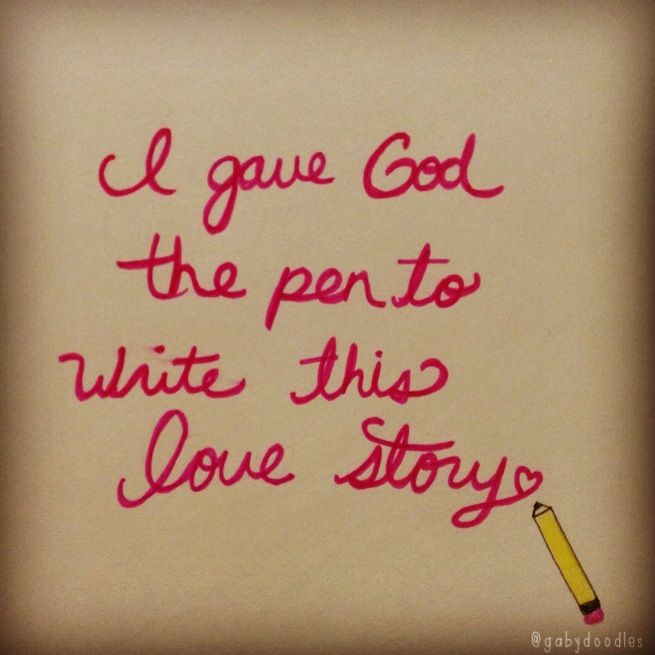 I gave God
the pen to
write this
love story
@gabydoodles